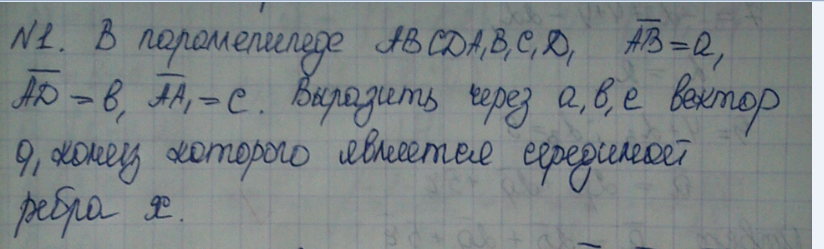 N1. В паралепипеде ABCDA₁B₁C₁D₁ AB = a,
AD = b, AA₁ = c. Выразить через a, b, c вектор
q, конец которого является серединой
ребра x.